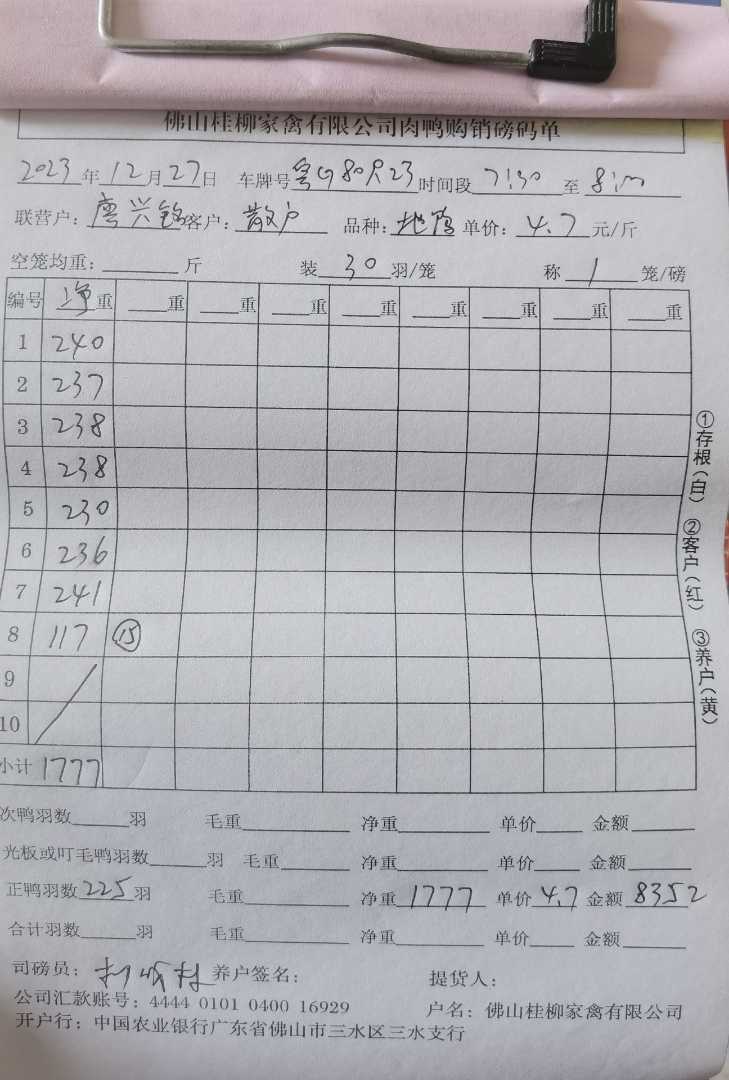 佛山桂柳家禽有限公司肉鸭购销磅码单
2023年12月27日 车牌号 粤G80R23 时间段 7:30 至 8:
联营户: 唐兴铭 客户: 散户 品种: 地鸭 单价: 4.7 元/斤
空笼均重: 斤 装 30 羽/笼 称 1 笼/磅
编号 净重 重 重 重 重 重 重 重 重
1 240
2 237
3 238
4 238
5 230
6 236
7 241
8 117 ⑮
9
10
小计 1777
①存根(白) ②客户(红) ③养户(黄)
次鸭羽数 羽 毛重 净重 单价 金额
光板或叮毛鸭羽数 羽 毛重 净重 单价 金额
正鸭羽数 225 羽 毛重 净重 1777 单价 4.7 金额 8352
合计羽数 羽 毛重 净重 单价 金额
司磅员: 养户签名: 提货人:
公司汇款账号: 4444 0101 0400 16929 户名: 佛山桂柳家禽有限公司
开户行: 中国农业银行广东省佛山市三水区三水支行